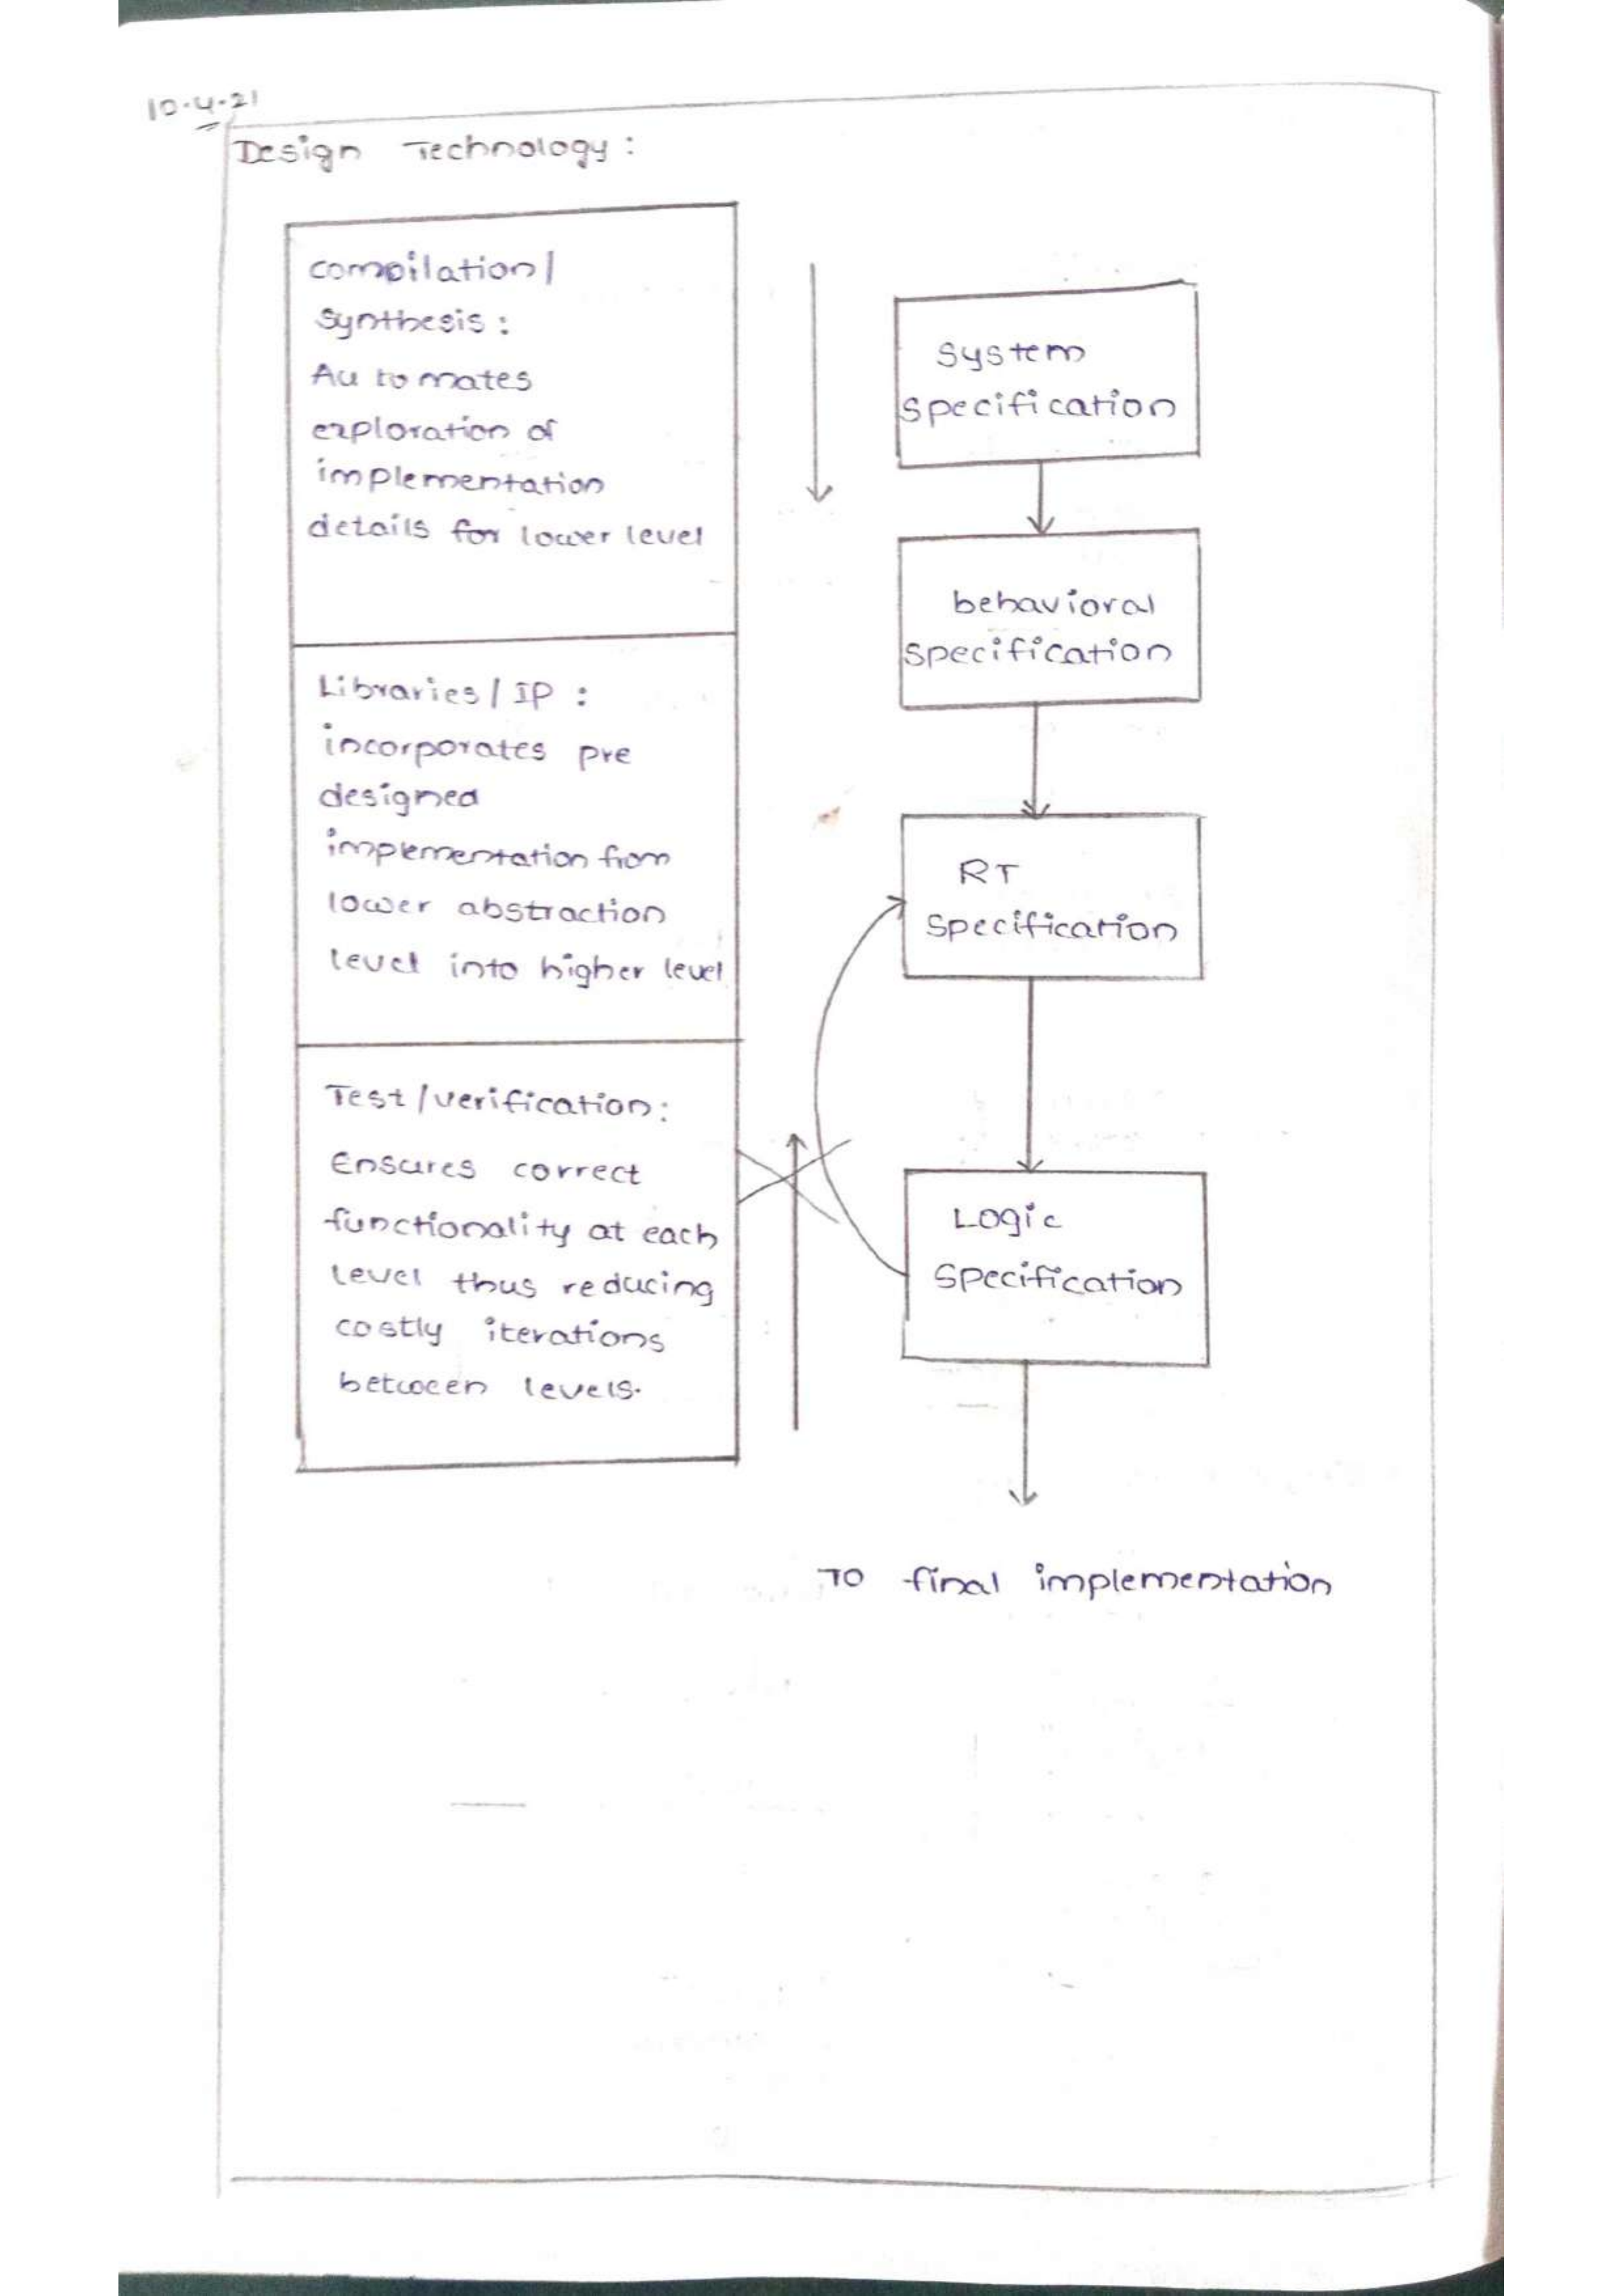 10.4.21
Design Technology:
compilation/
Synthesis:
Automates
exploration of
implementation
details for lower level
Libraries/IP:
incorporates pre
designed
implementation from
lower abstraction
level into higher level
Test/verification:
Ensures correct
functionality at each
level thus reducing
costly iterations
between levels.
System
specification
behavioral
specification
RT
Specification
Logic
Specification
To final implementation